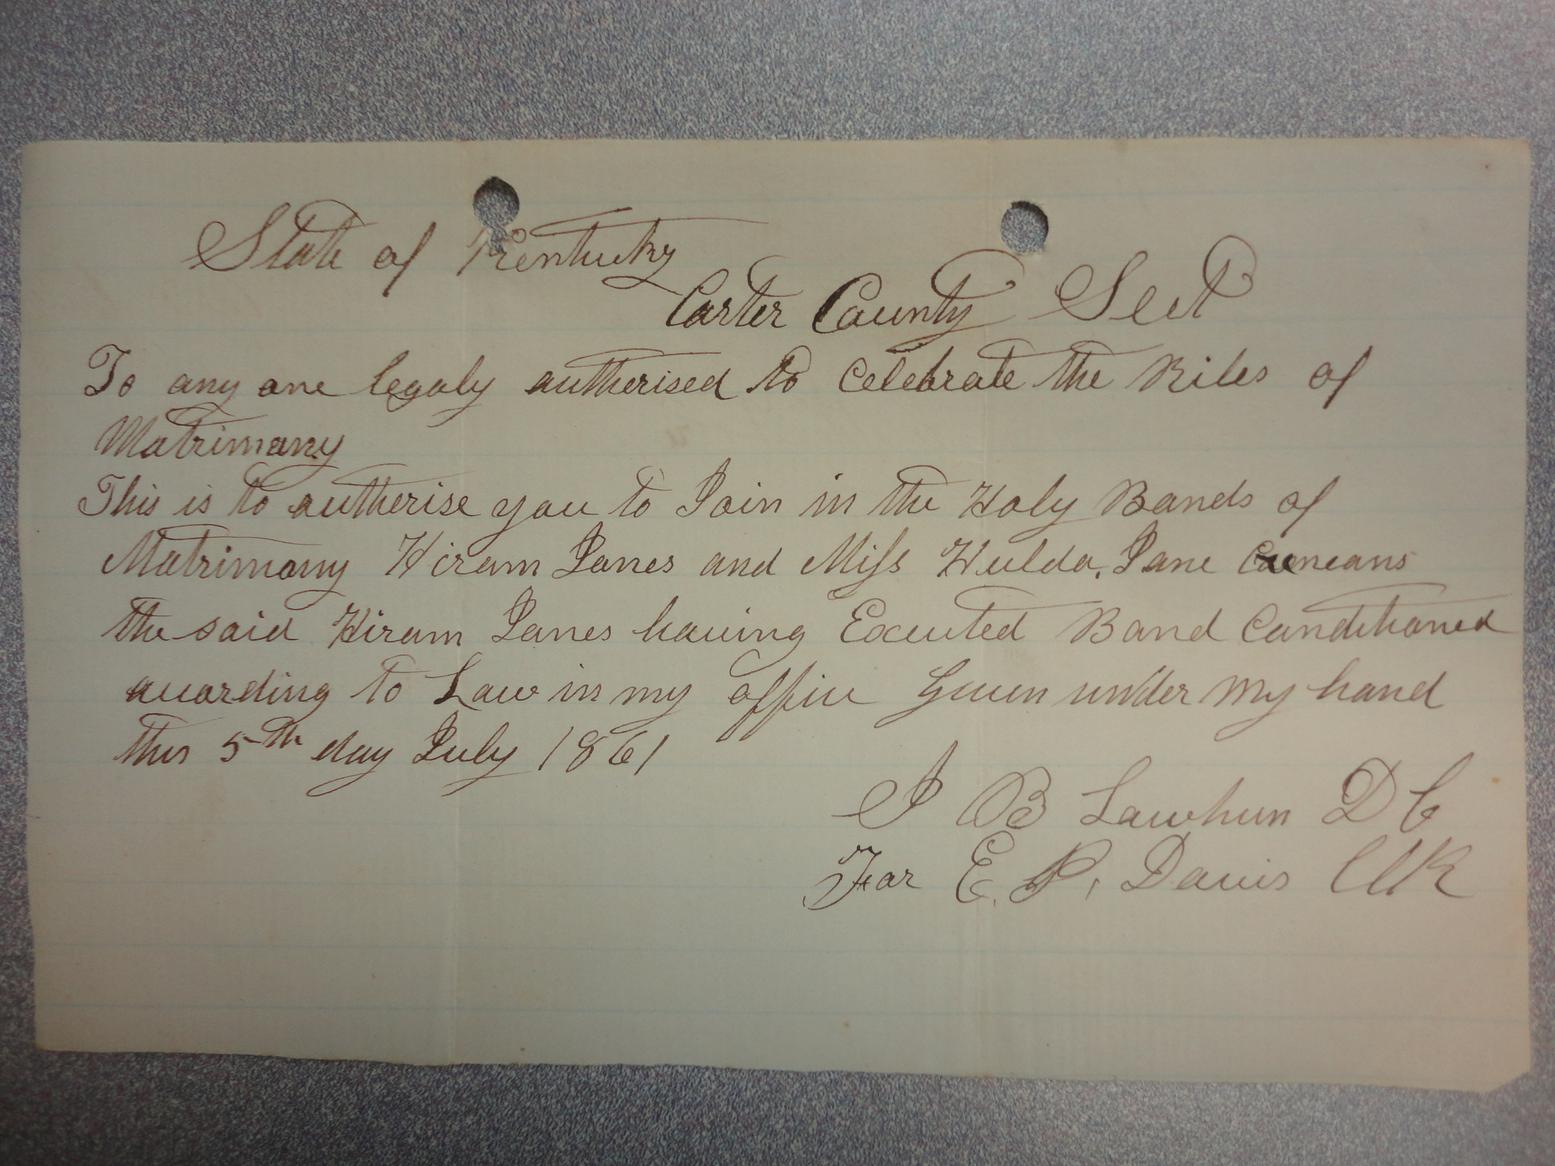 State of Kentucky
Carter County Sect
To any one legaly autherised to celebrate the Rites of
Matrimony
This is to autherise you to Join in the Holy Bonds of
Matrimony Hiram Jones and Miss Hulda Jane
the said Hiram Jones having Excuted Bond Conditioned
acording to Law in my office Given under my hand
this 5th day July 1861
J B Lawhun D C
For E. P. Davis Clk